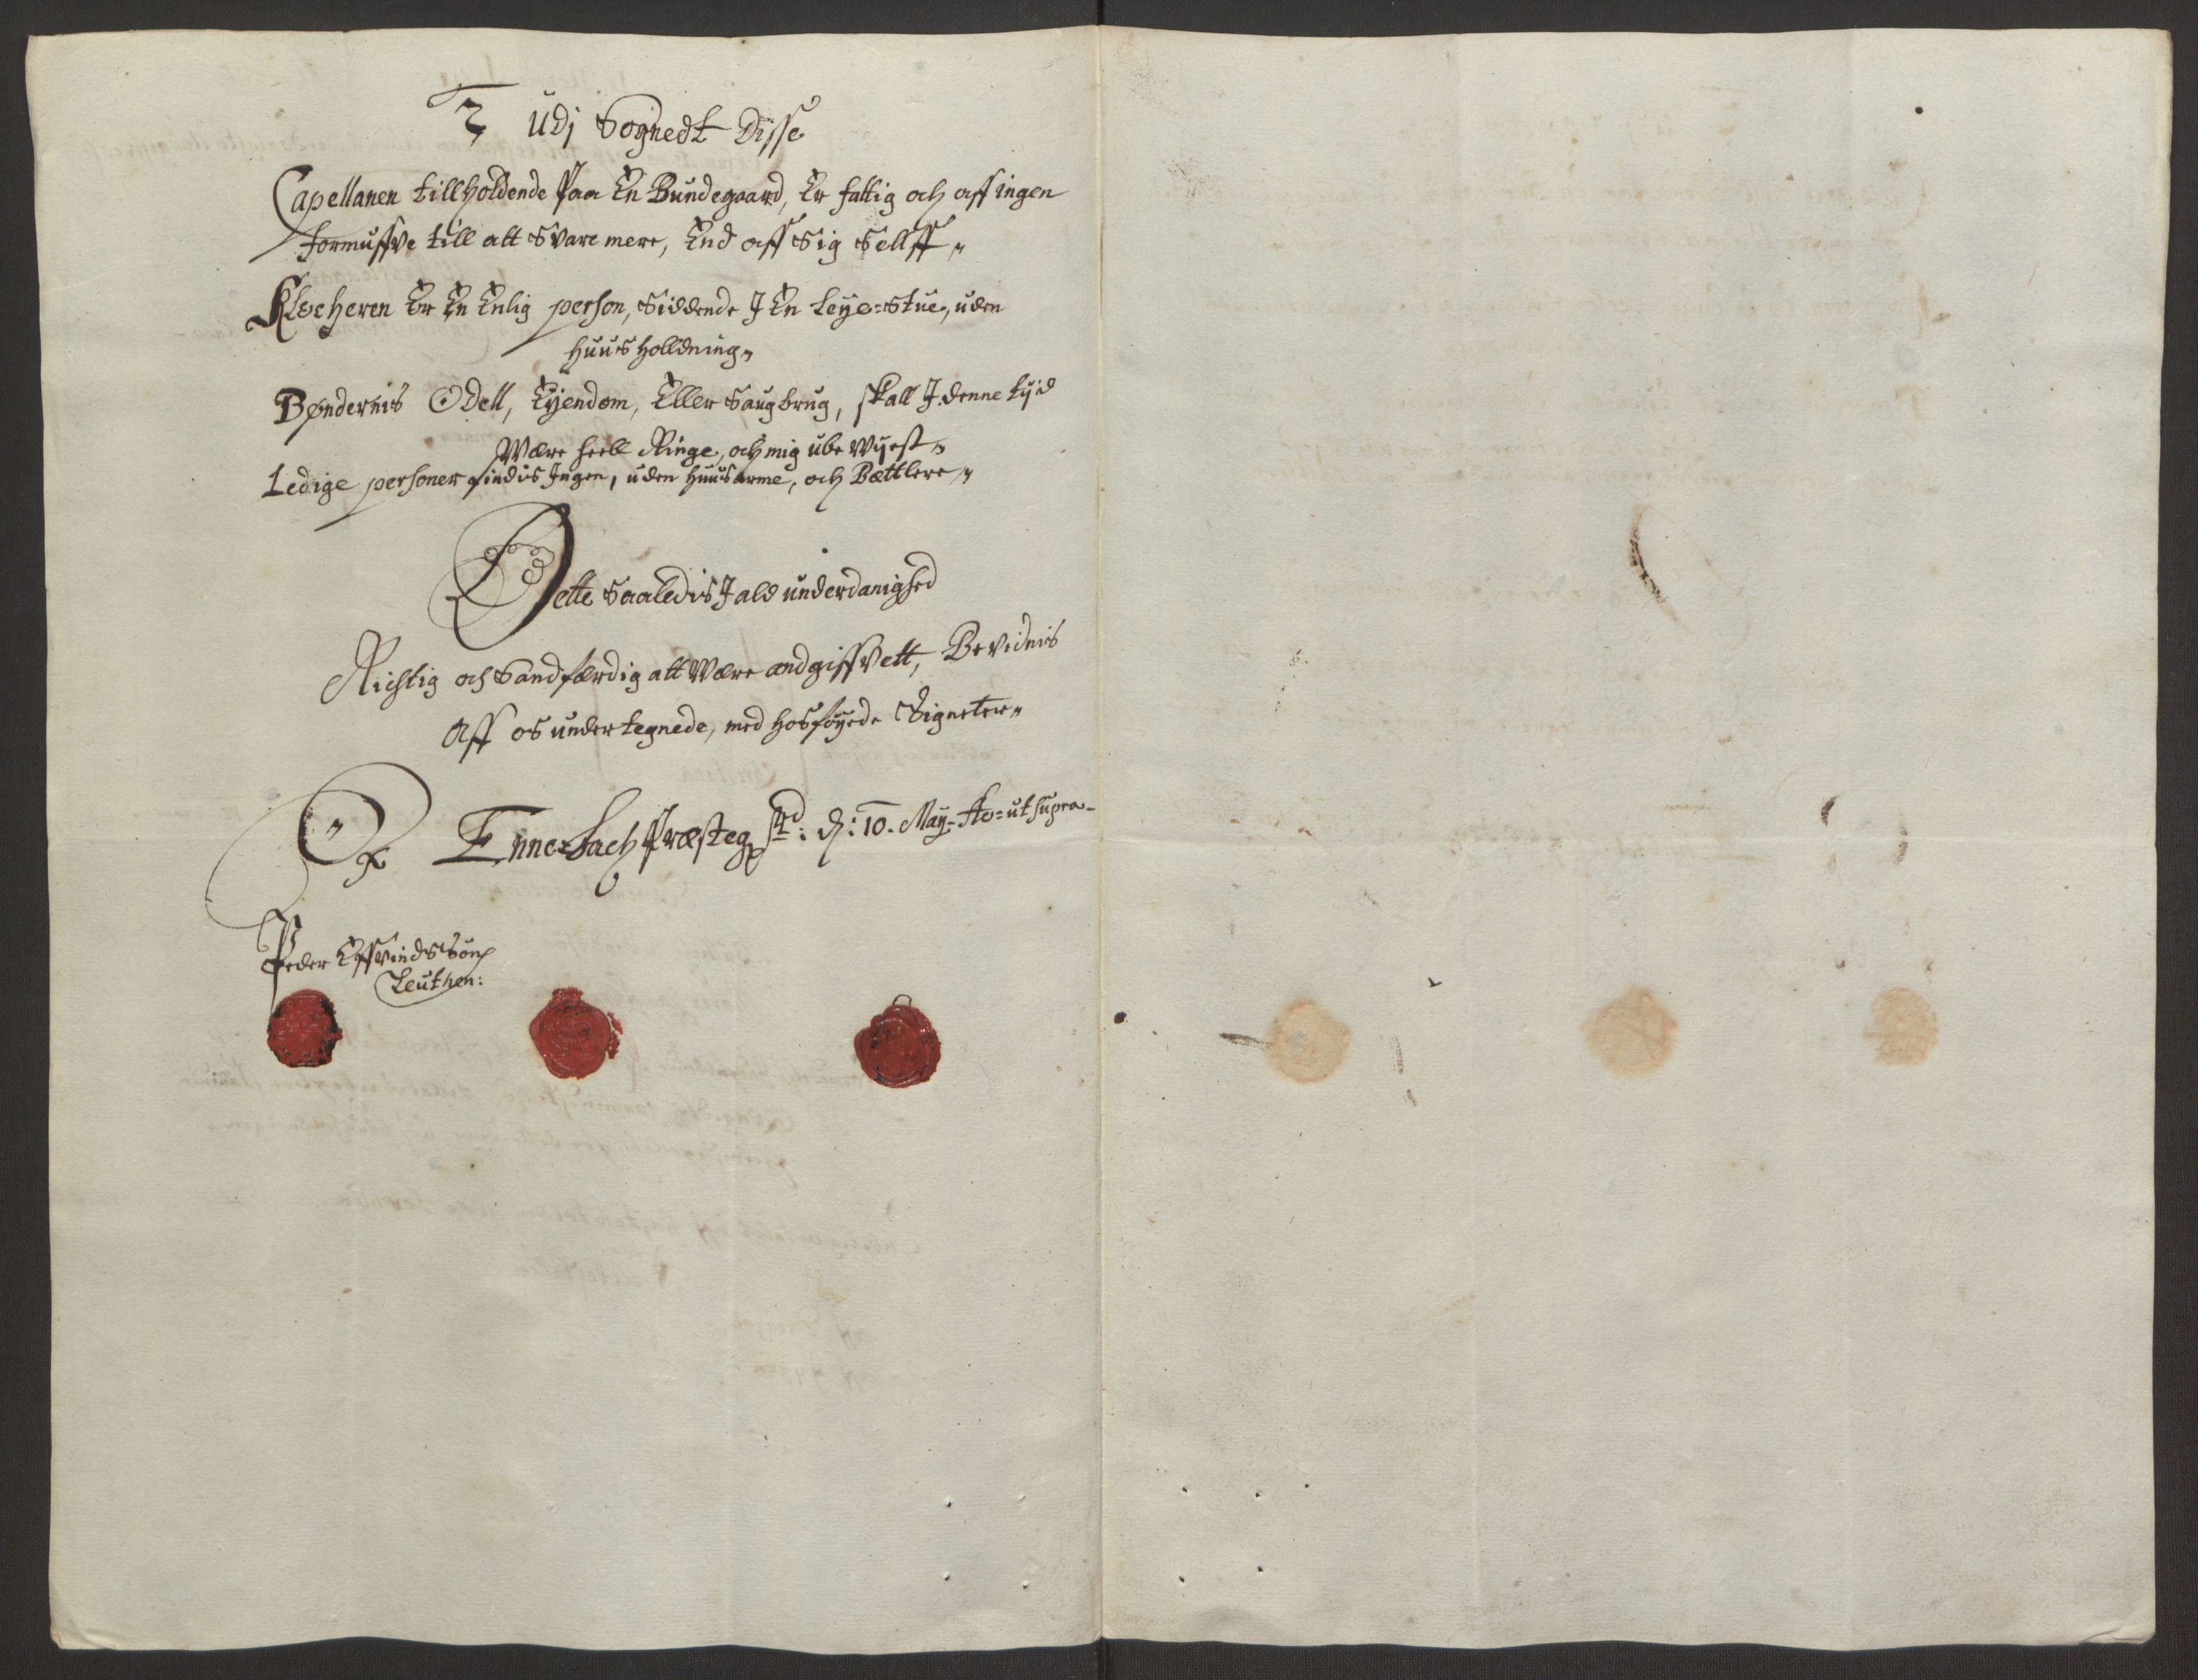 Udj Sognedt Disse
Capellanen tillholdende Paa En Bundegaard, Er fattig och aff ingen
formuffve till att Svare mere, End aff Sig Sellff
Klocheren Er En Enlig person, Siddende J En Leye-Stue, uden
huusholldning
Bøndernis Odell, Eyendom, Eller Saugbrug, skall J denne tijd
Være heell Ringe, och mig ube Wyest
Ledige personer findis Ingen, uden huusarme, och Bættlere
Dette Saaledis J ald underdanighed
Richtig och Sandfærdig att Være andgiffvett, Bevidnis
Aff os undertegnede, med hosføyede Signeter
Ennebach Præsteg d: 10. May: Ao= ut supra
Peder Effvindssøn
Leuthen: